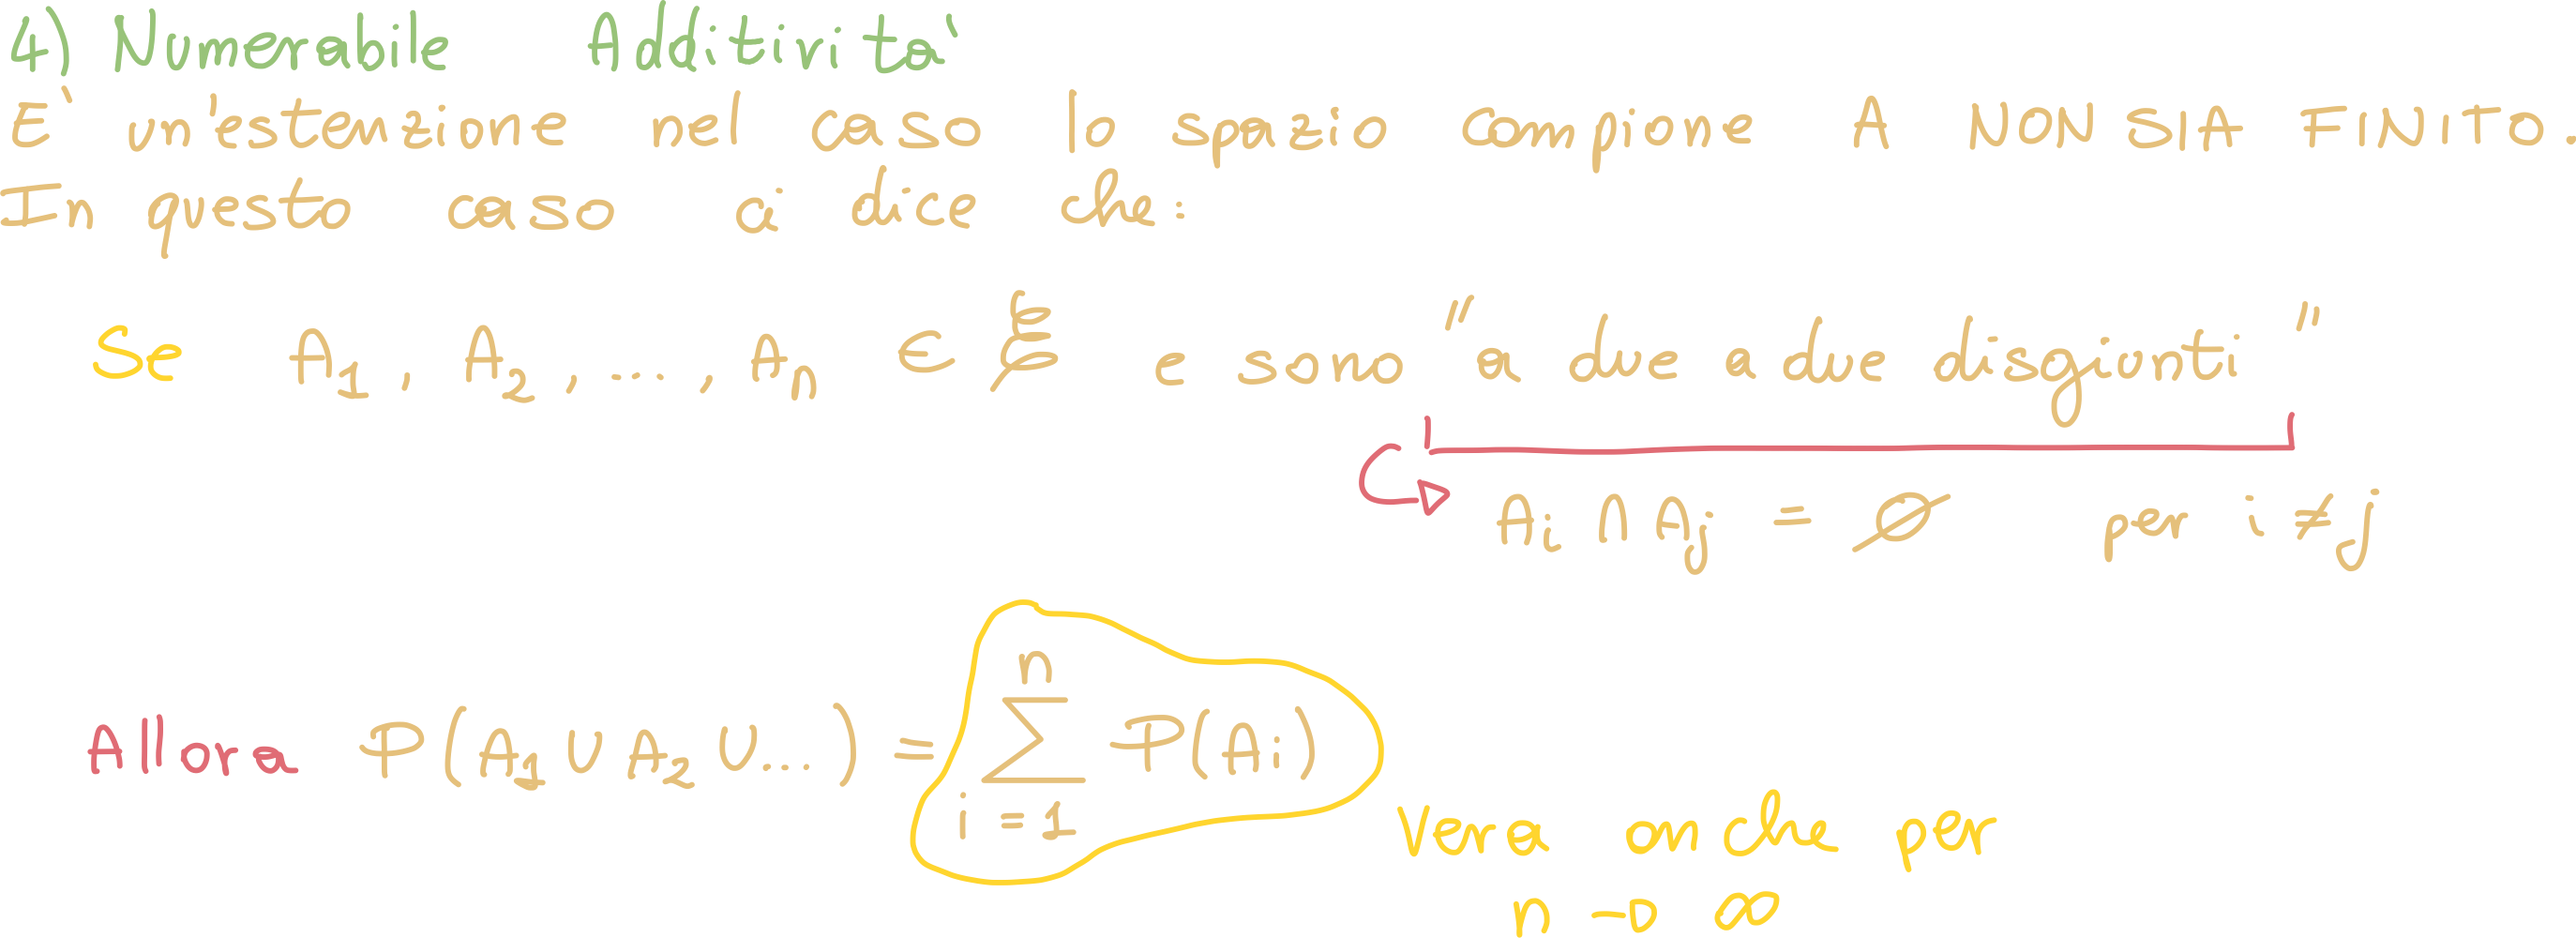 4) Numerabile Additività
E' un'estenzione nel caso lo spazio compione A NON SIA FINITO.
In questo caso ci dice che:
Se A₁, A₂, ..., Aₙ ∈ ℰ e sono "a due a due disgiunti"
Aᵢ ∩ Aⱼ = ∅ per i ≠ j
Allora P(A₁ ∪ A₂ ∪ ...) = ∑ᵢ₌₁ⁿ P(Aᵢ)
Vera anche per
n → ∞